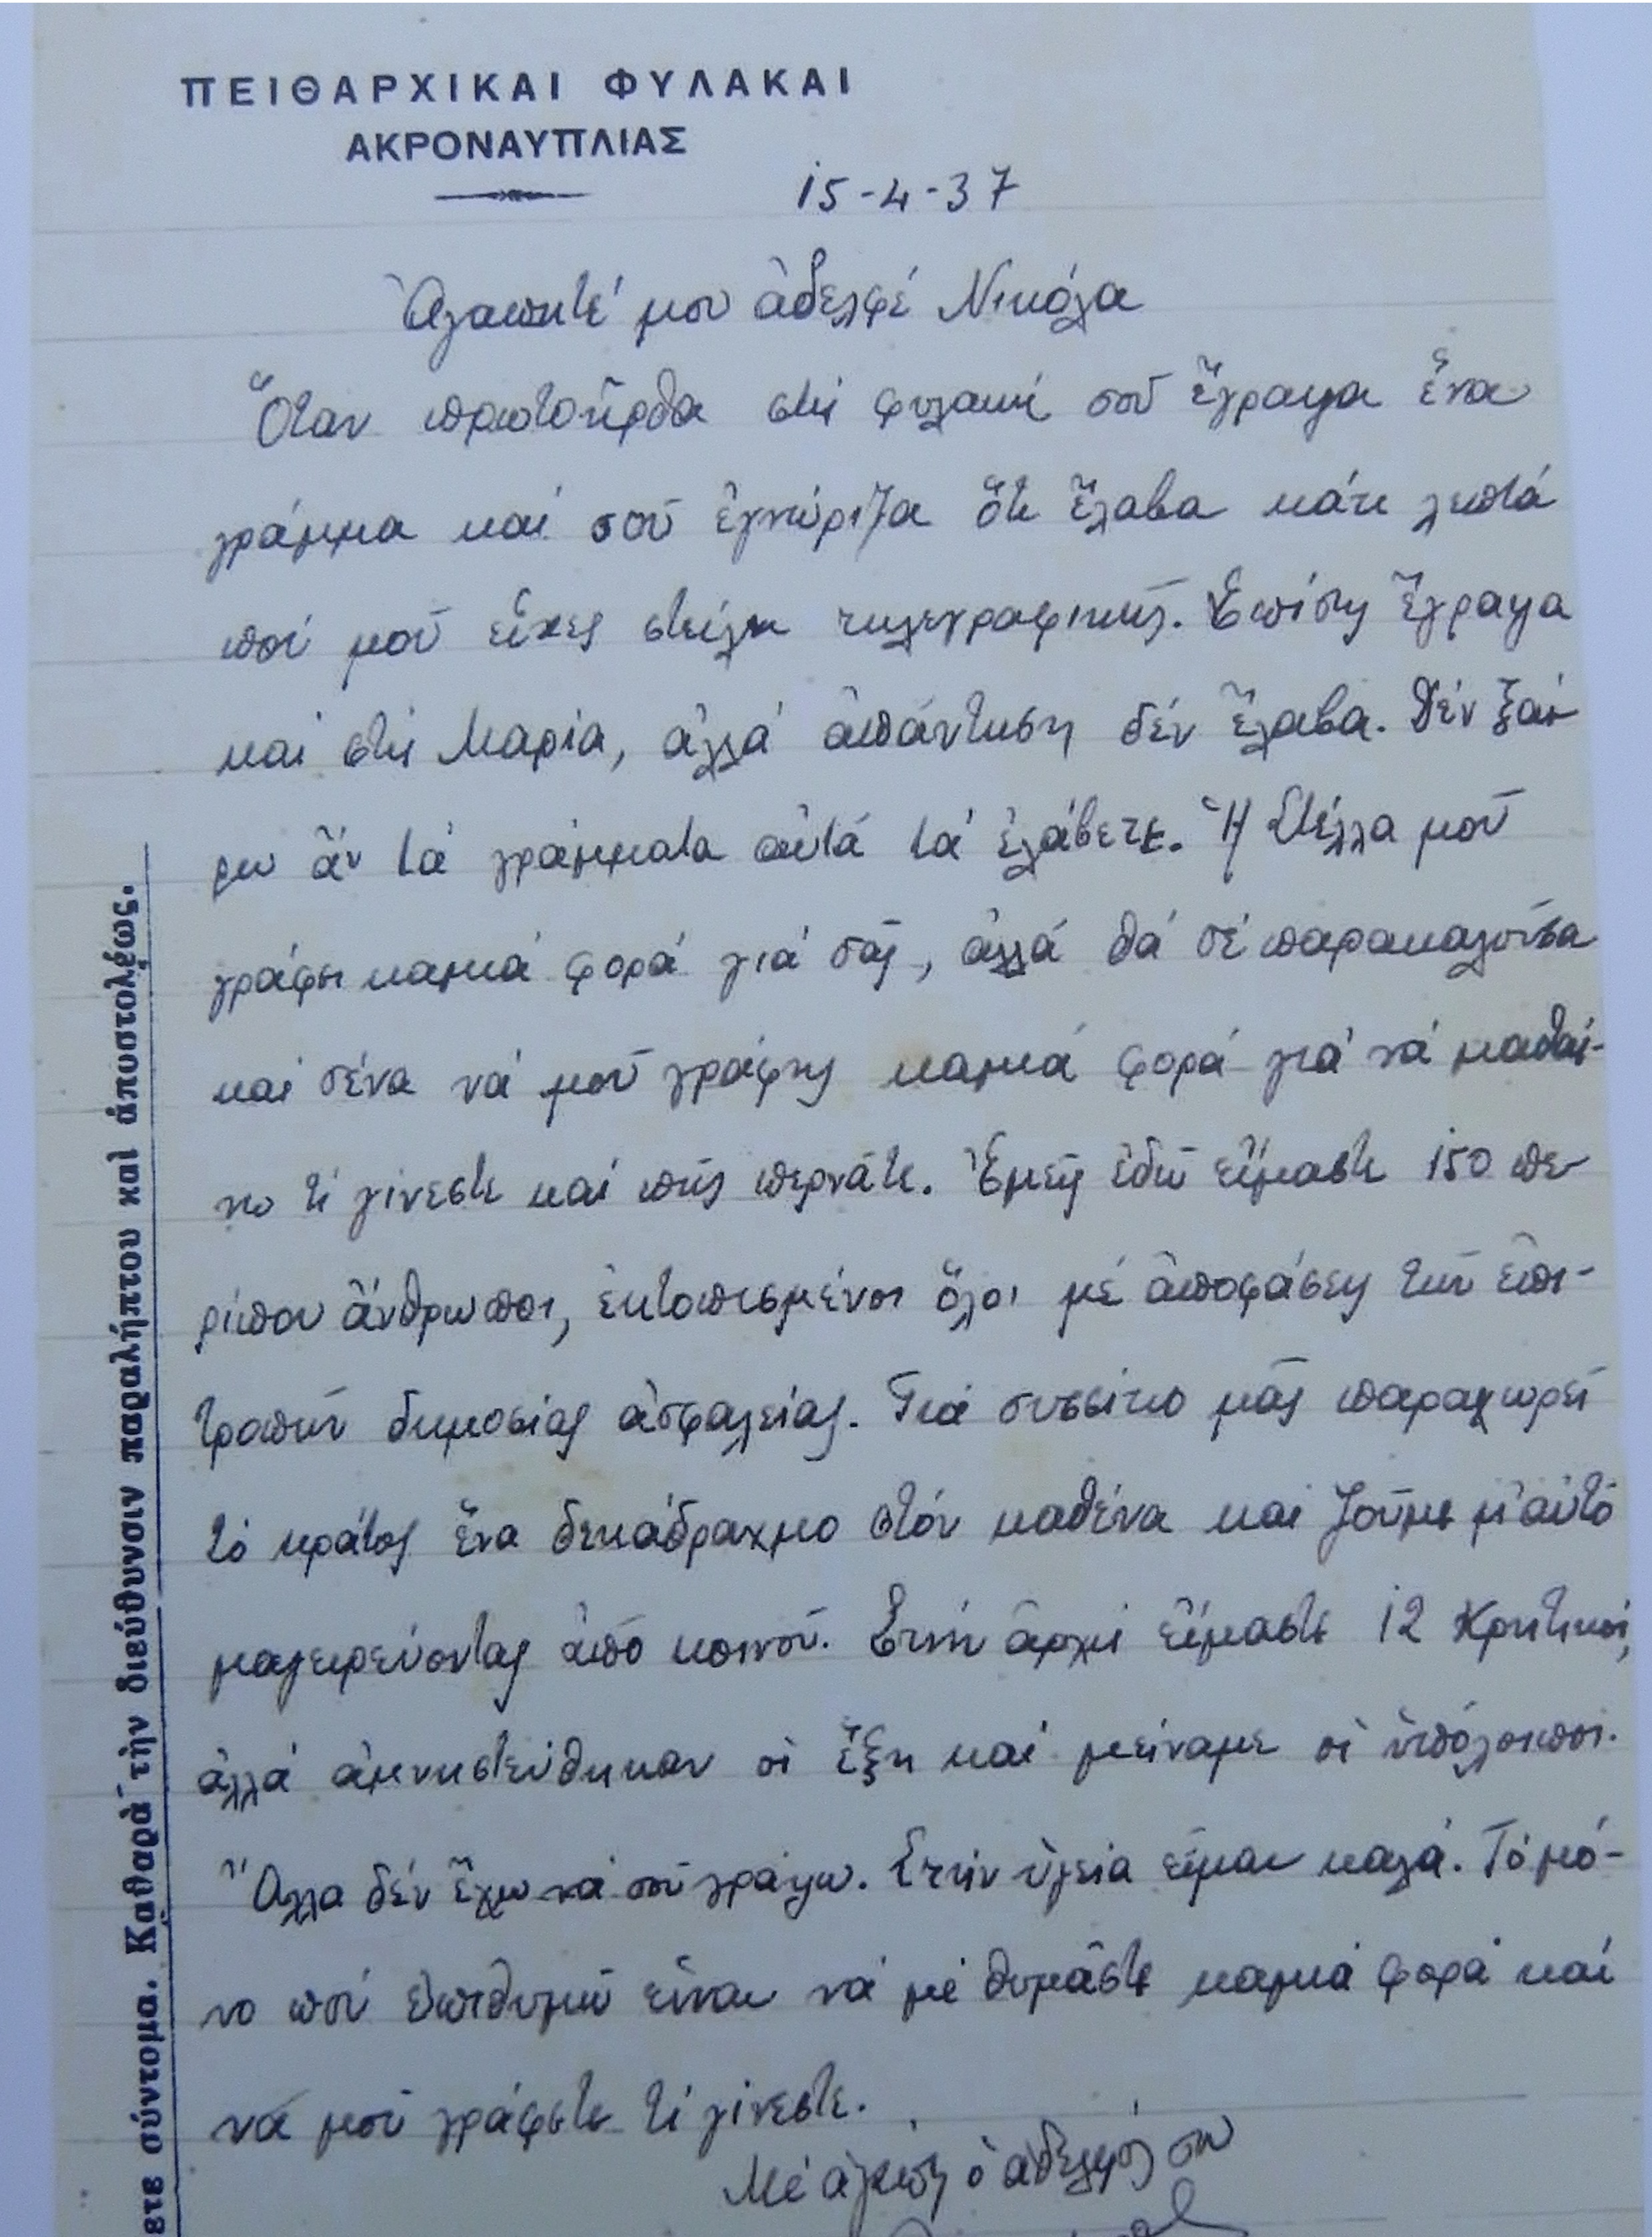 ΠΕΙΘΑΡΧΙΚΑΙ ΦΥΛΑΚΑΙ
ΑΚΡΟΝΑΥΠΛΙΑΣ
15-4-37
Ἀγαπητέ μου ἀδελφέ Νικόλα
Ὅταν πρωτοῆρθα στή φυλακή σοῦ ἔγραψα ἕνα
γράμμα καί σοῦ ἐγνώριζα ὅτι ἔλαβα κάτι λεπτά
πού μοῦ εἶχες στείλει τηλεγραφικῶς. Ἐπίσης ἔγραψα
καί στή Μαρία, ἀλλά ἀπάντηση δέν ἔλαβα. Δέν ξαί-
ρω ἄν τά γράμματα αὐτά τά ἐλάβετε. Ἡ Στέλλα μοῦ
γράφει καμιά φορά γιά σᾶς, ἀλλά θά σέ παρακαλοῦσα
καί σένα νά μοῦ γράφης καμιά φορά γιά νά μαθαί-
νω τί γίνεστε καί πῶς περνᾶτε. Ἐμεῖς ἐδῶ εἴμαστε 150 πε-
ρίπου ἄνθρωποι, ἐκτοπισμένοι ὅλοι μέ ἀποφάσεις τῶν ἐπι-
τροπῶν δημοσίας ἀσφαλείας. Γιά συσσίτιο μᾶς παραχωρεῖ
τό κράτος ἕνα δεκάδραχμο στόν καθένα καί ζοῦμε μ'αὐτό
μαγειρεύοντας ἀπό κοινοῦ. Στήν ἀρχή εἴμαστε 12 Κρητικοί,
ἀλλά ἀμνηστεύθηκαν οἱ ἕξη καί μείναμε οἱ ὑπόλοιποι.
Ἄλλα δέν ἔχω νά σοῦ γράψω. Στήν ὑγεία εἶμαι καλά. Τό μό-
νο πού ἐπιθυμῶ εἶναι νά μέ θυμᾶστε καμιά φορά καί
νά μοῦ γράφετε τί γίνεστε.
Μέ ἀγάπη ὁ ἀδελφός σου
ετε σύντομα. Καθαρὰ τὴν διεύθυνσιν παραλήπτου καὶ ἀποστολέως.